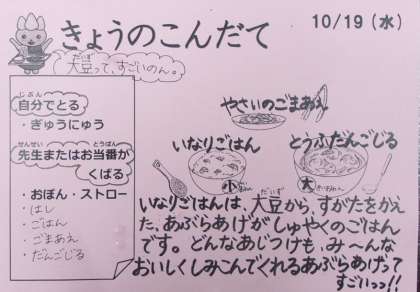 きょうのこんだて
10/19(水)
だいず
大豆って、すごいのん。
じぶん
自分でとる
・ぎゅうにゅう
せんせい とうばん
先生またはお当番が
くばる
・おぼん・ストロー
・はし
・ごはん
・ごまあえ
・だんごじる
やさいのごまあえ
いなりごはん
とうふだんごじる
小
大
だいず
いなりごはんは、大豆から、すがたをかえ
た、あぶらあげがしゅやくのごはん
です。どんなあじつけも、み〜んな
おいしくしみこんでくれるあぶらあげって
すごいっ!!